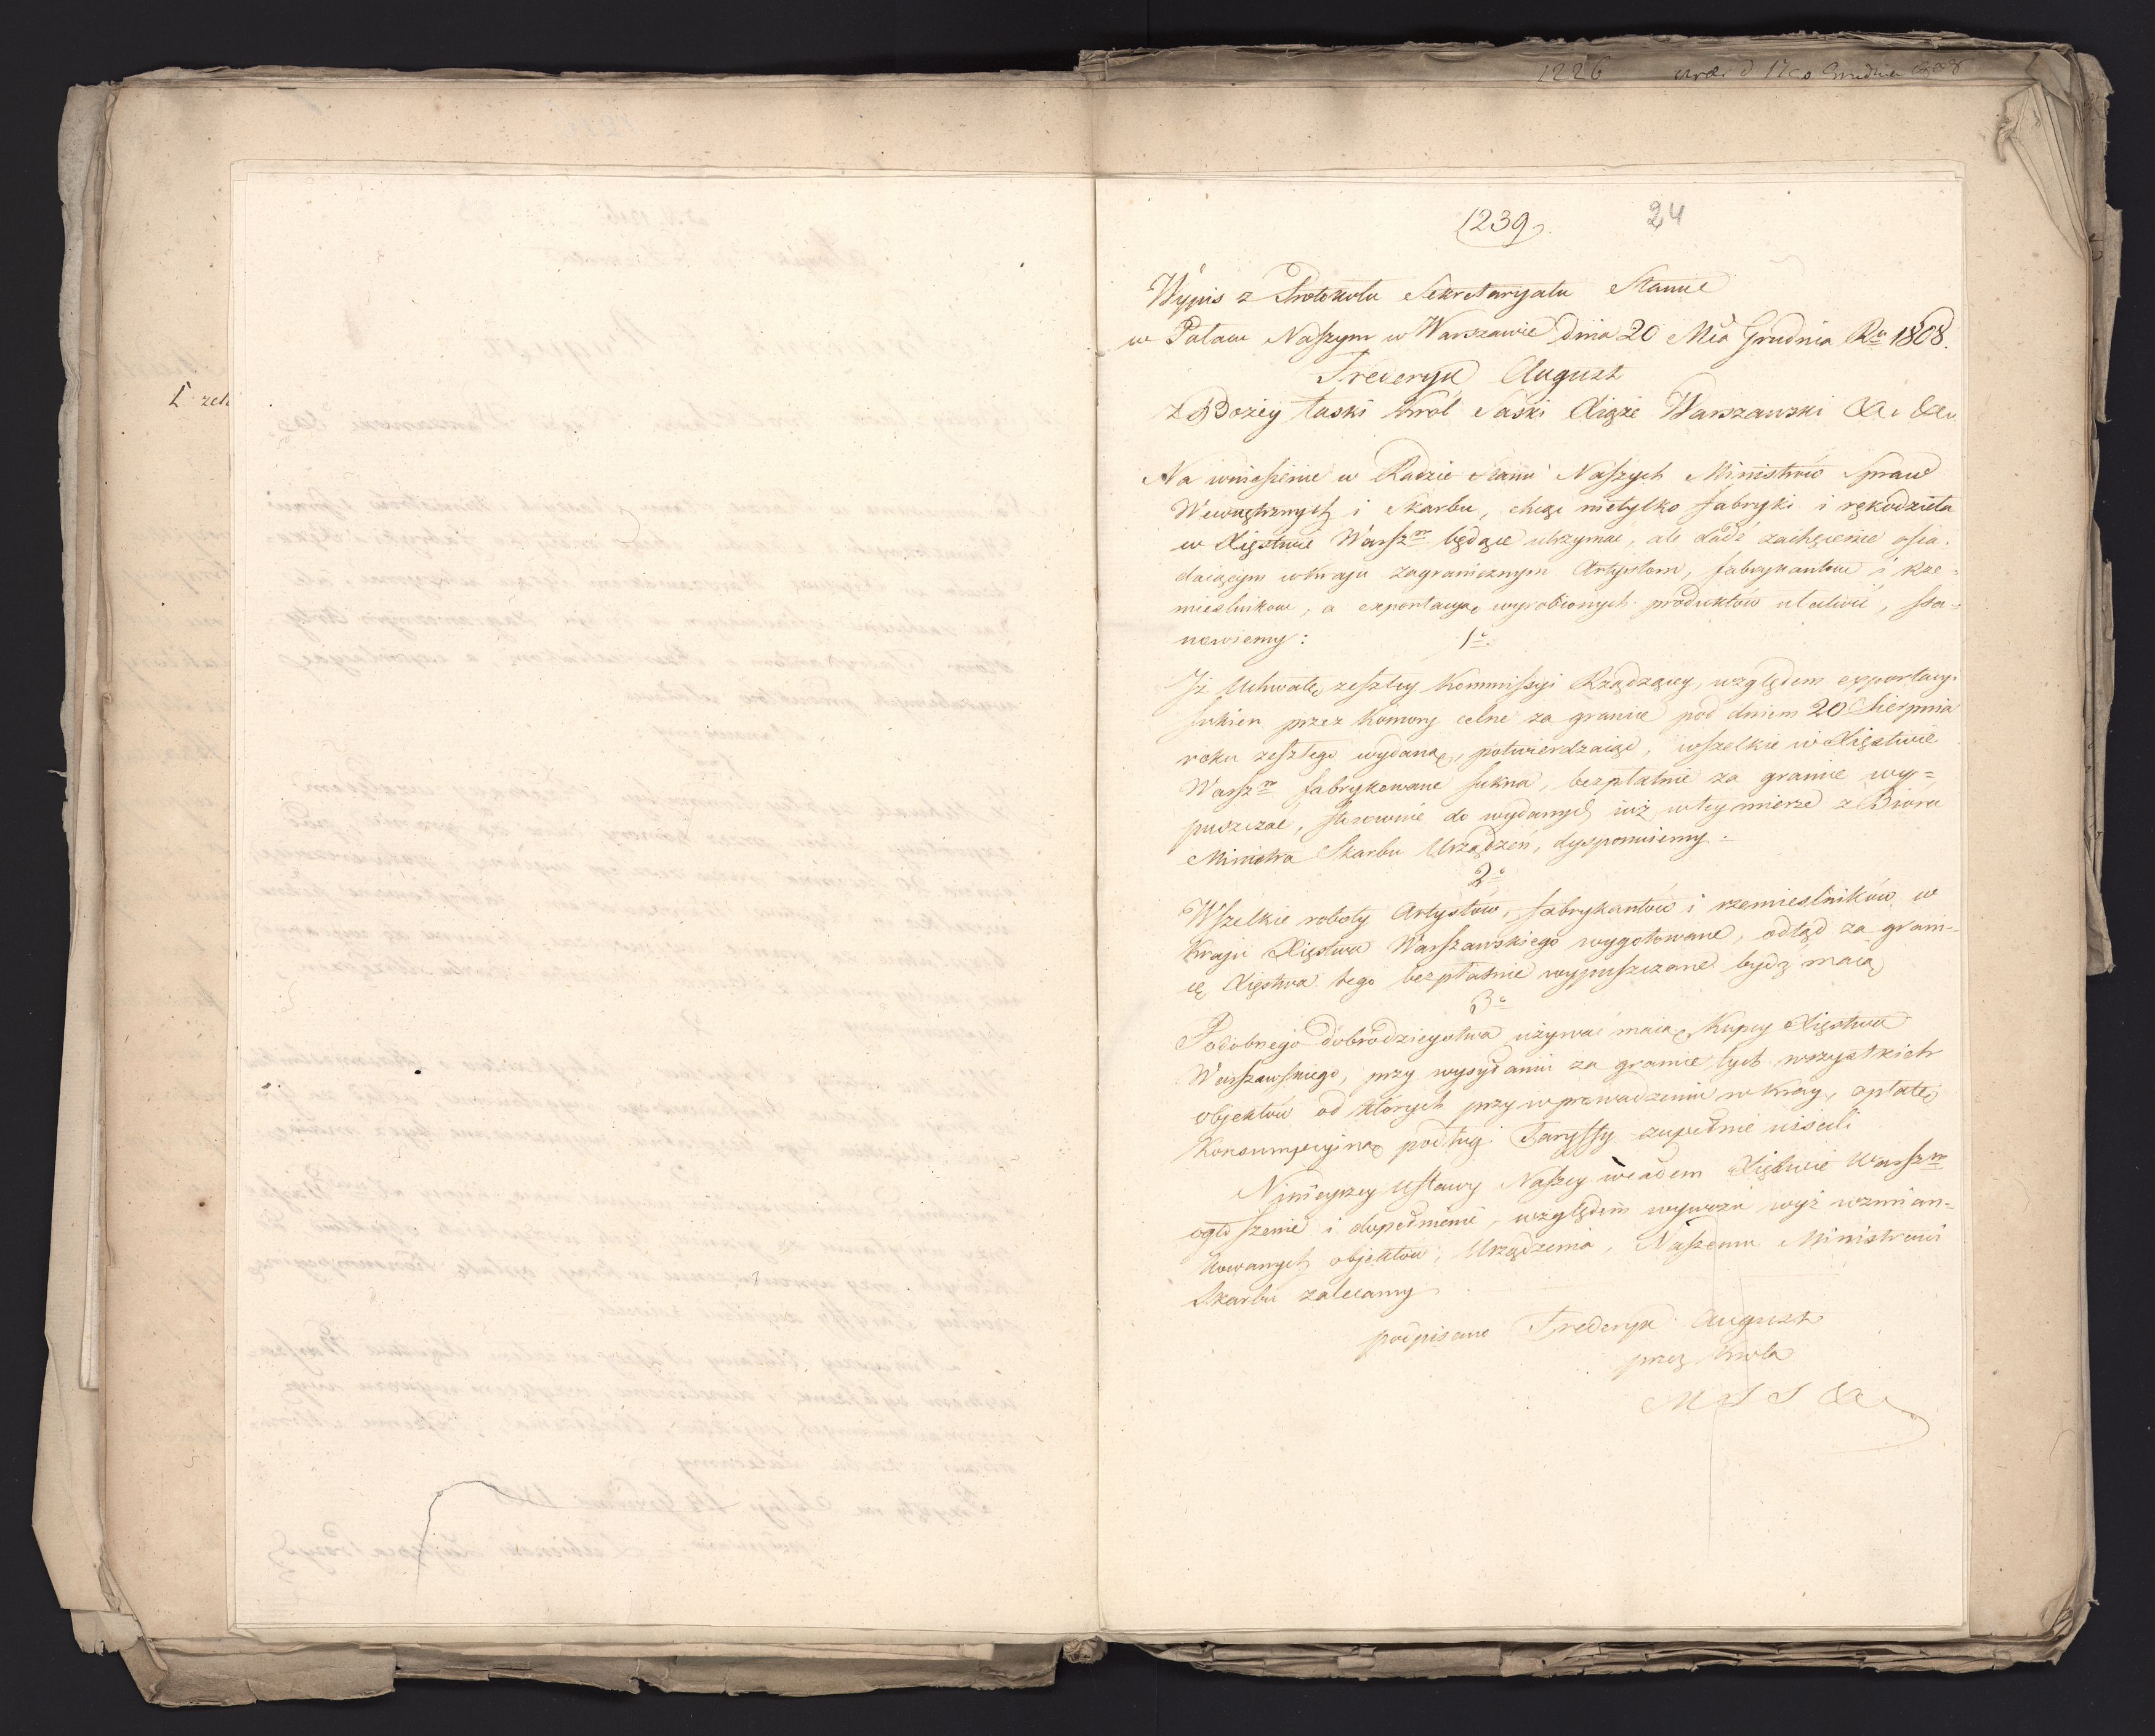 1226
Grudnia 1808
1239
24
Wypis z Protokołu Sekretaryatu Stanu
w Pałacu Naszym w Warszawie dnia 20 Mca Grudnia Ru 1808.
Frederyk August
z Bożey łaski Krol Saski Xiąże Warszawski &c. &c.
Na wniesienie w Radzie Stanu Naszych Ministrów Spraw
Wewnętrznych i Skarbu, chcąc nietylko fabryki i rękodzieła
w Xięstwie Warszm będące utrzymać, ale dadź zachęcenie osia-
daiącym w kraju zagranicznym Artystom, fabrykantom i Rze-
mieslnikom, a exportacyą wyrobionych produktów ułatwić, sta-
nowiemy:
1o
Iż Uchwałę zeszłey Kommissyi Rządzącey, względem exportacyi
sukien przez Komory celne za granicę pod dniem 20 Sierpnia
roku zeszłego wydaną, potwierdzaiąc, wszelkie w Xięstwie
Warszm fabrykowane sukna, bezpłatnie za granicę wy-
puszczać, stosownie do wydanych iuż w tey mierze z Biora
Ministra Skarbu Urządzeń, dysponuiemy.
2o
Wszelkie roboty Artystów, fabrykantów i rzemieslników w
Kraju Xięstwa Warszawskiego wygotowane, odtąd za grani-
cę Xięstwa tego bezpłatnie wypuszczane bydź maią
3o
Podobnego dobrodzieystwa używać maią Kupcy Xięstwa
Warszawskiego, przy wysyłaniu za granicę tych wszystkich
objektów od których przy wprowadzeniu w Kray, opłatę
Konsumpcyiną podług Taryffy zupełnie uiscili
Ninieyszey Ustawy Naszey w całem Xięstwie Warszm
ogłoszenie i dopełnienie, względem wywozu wyż wzmian-
kowanych objektów, Urządzenia, Naszemu Ministrowi
Skarbu zalecamy
podpisano Frederyk August
przez Krola
M S S &c